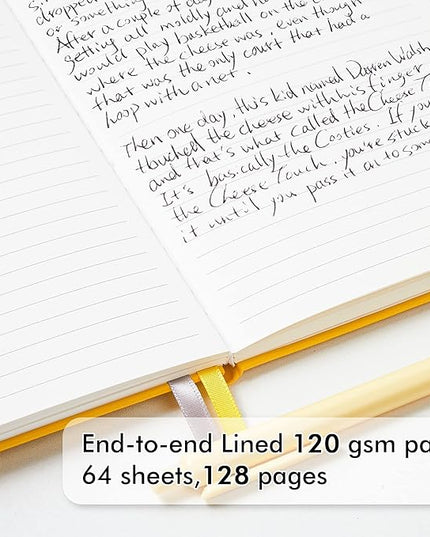 dropped
or something
After a couple of day
getting all moldy and n
would play basketball on the c
where the cheese was, even though
that was the only court that had a
hoop with a net.
Then one day, this kid named Darren Walsh
touched the cheese with his finger
and that's what called the Cheese T
It's basically the Cooties. If you
the Cheese Touch, you're stuck
it until you pass it on to som
End-to-end Lined 120 gsm pa
64 sheets,128 pages